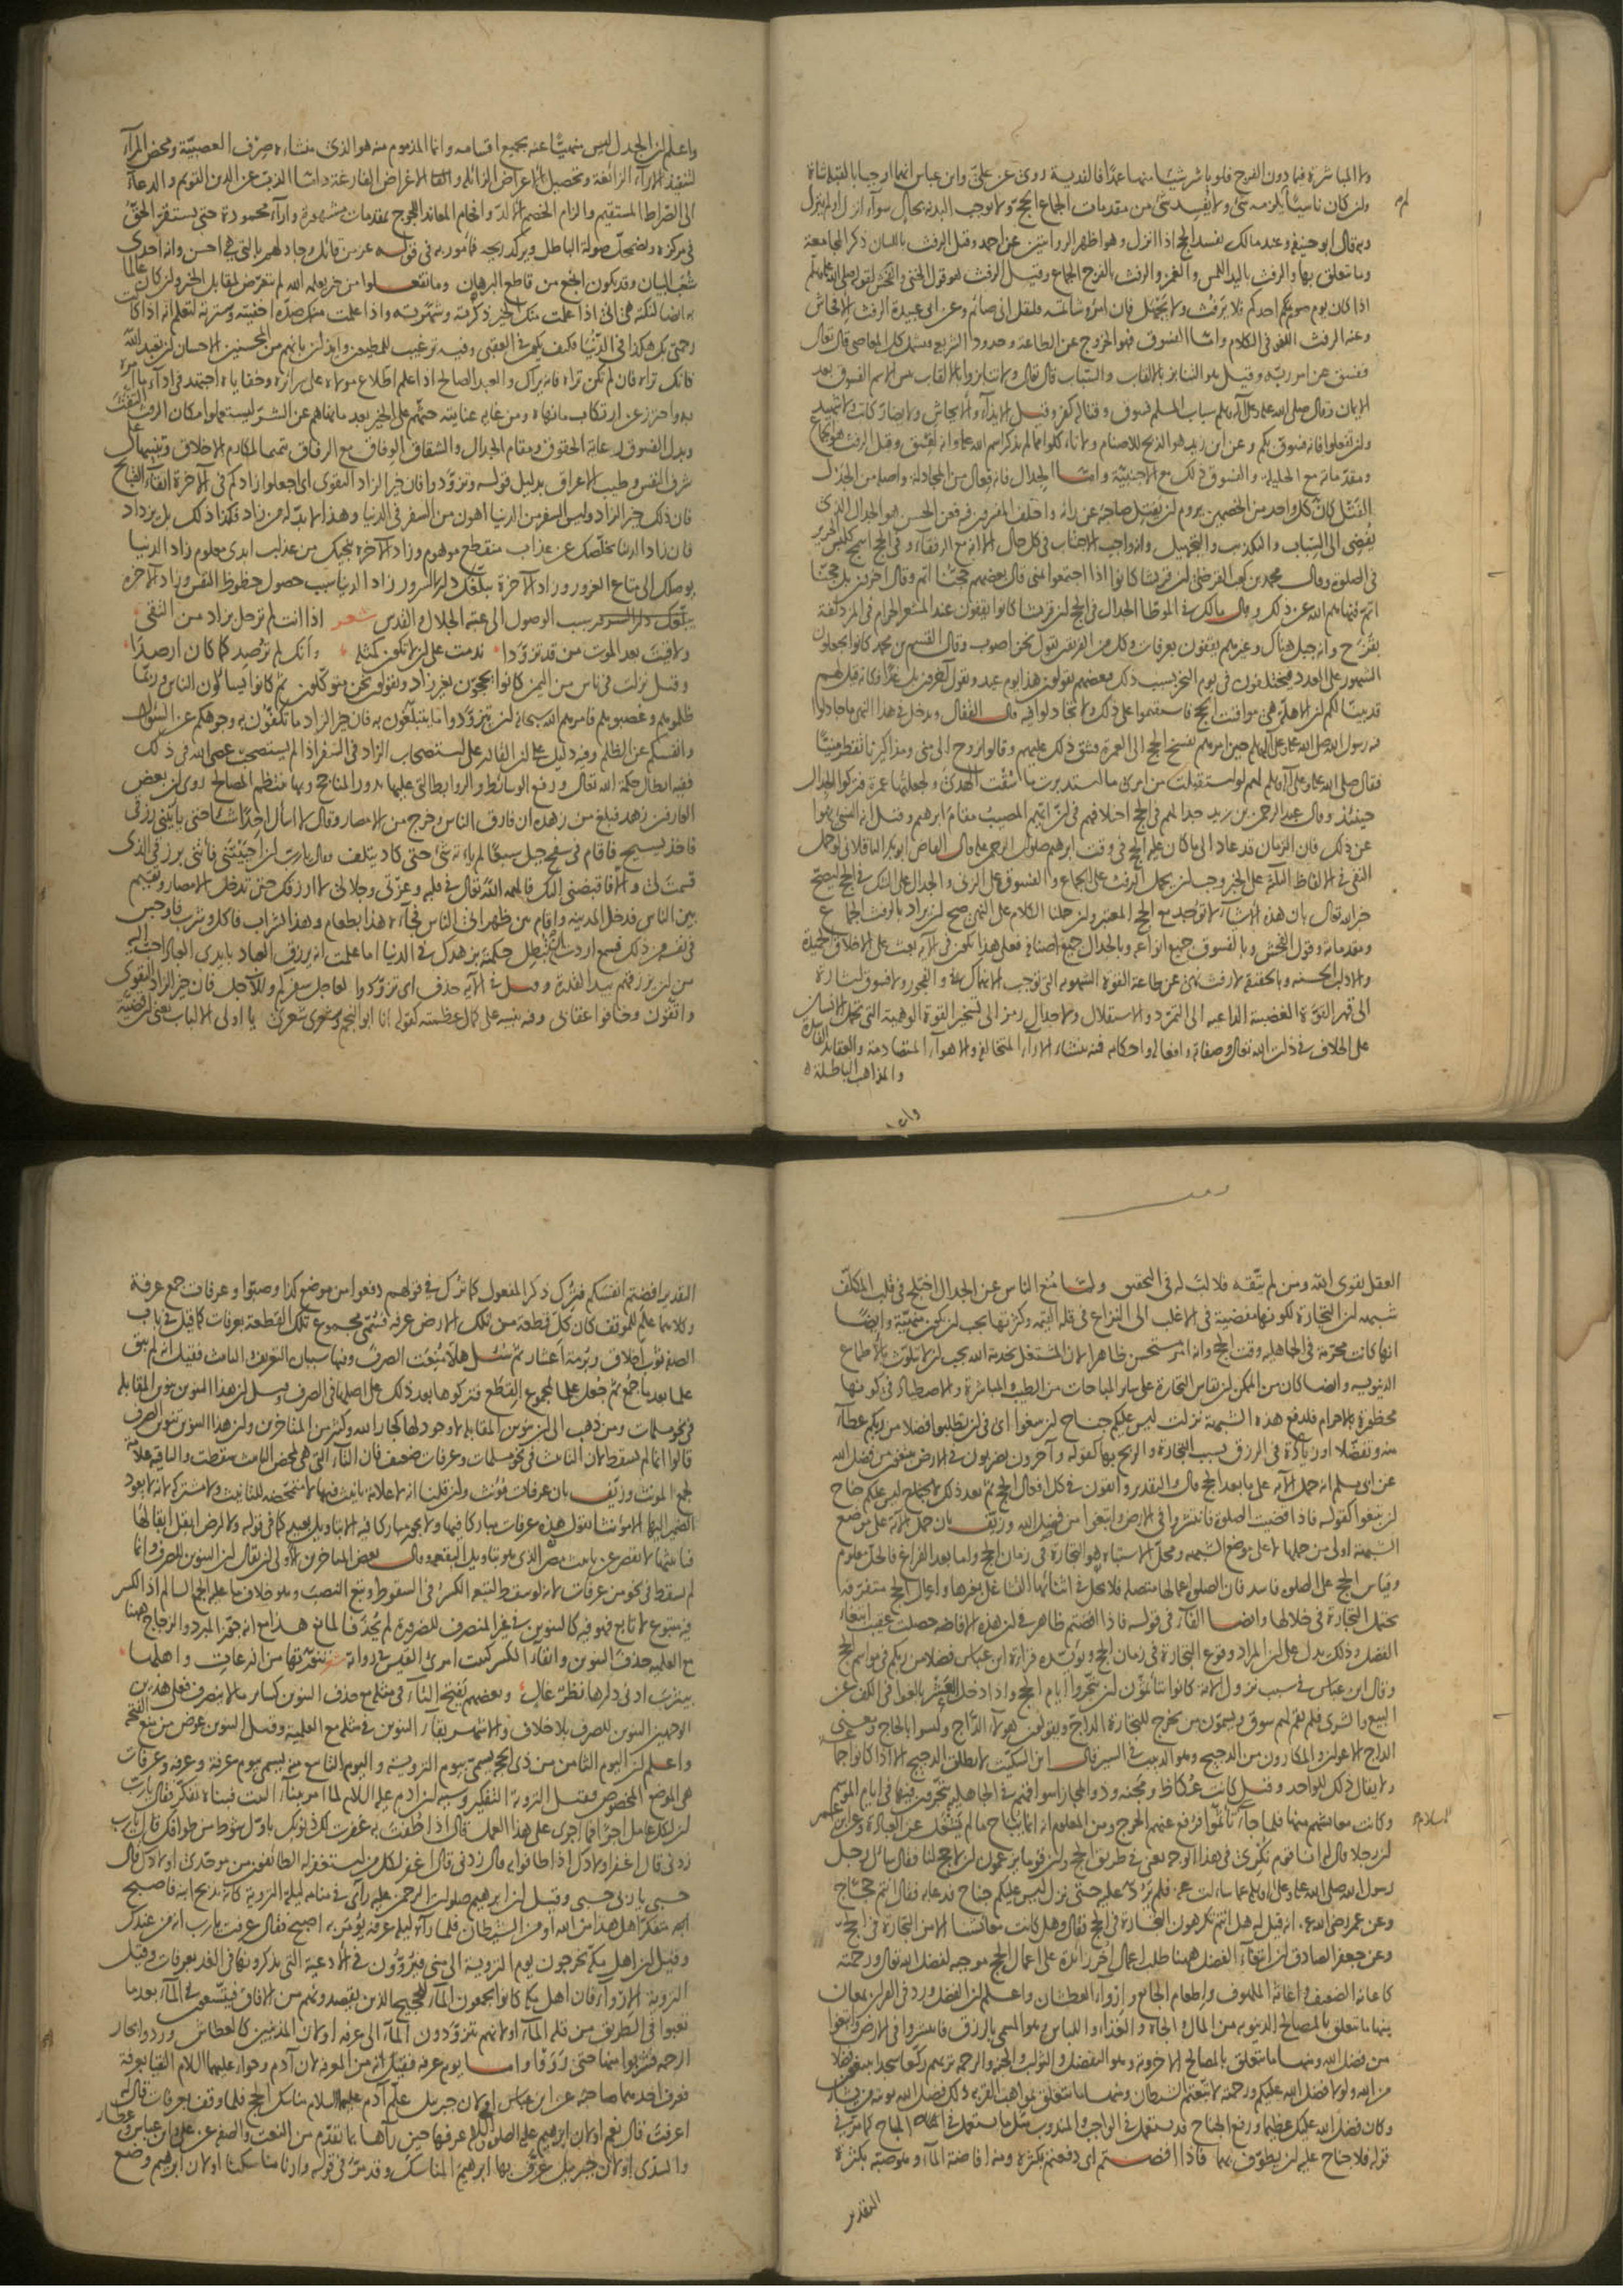 ولا المباشرة فيما دون الفرج فلو باشر شيئا منها عمدًا فالفدية روى عن علىّ وابن عباس انهما اوجبا بالقبلة شاة
ولن كان ناسيا لم يلزمه شئ ولا يفسد شئ من مقدمات الجماع الحج ولا يوجب البدنة بحال سواء انزل او لم ينزل
وبه قال ابو حنيفة وعند مالك يفسد الحج اذا انزل وهو اظهر الروايتين عن احمد وقيل الرفث باللسان ذكر المجامعة
وما يتعلق بها والرفث باليد اللمس والغمز والرفث بالفرج الجماع وقيل الرفث هو قول الخنى والفحش لقوله صلى الله عليه وسلم
اذا كان يوم صوم احدكم فلا يرفث ولا يجهل فان امرؤ شاتمه فليقل انى صائم وعن ابى عبيدة الرفث الافحاش
وعنه الرفث اللغو فى الكلام واما الفسوق فهو الخروج عن الطاعة وحدود الشريعة فيشمل كل المعاصى قال تعالى
ففسق عن امر ربه وقيل هو التنابز بالالقاب والسباب قال تعالى ولا تنابزوا بالالقاب بئس الاسم الفسوق بعد
الايمان وقال صلى الله عليه وعلى آله وسلم سباب المسلم فسوق وقتاله كفر وقيل الايذاء والافحاش ولا يضار كاتب ولا شهيد
ولن تفعلوا فانه فسوق بكم وعن ابن زيد هو الذبح للاصنام ولا تاكلوا مما لم يذكر اسم الله عليه وانه لفسق وقيل الرفث هو الجماع
ومقدماته مع الحليلة والفسوق ذلك مع الاجنبية واما الجدال فانه فعال من المجادلة واصله من الجدل
الفتل كان كل واحد من الخصمين يروم لن يفتل صاحبه عن رأيه واختلف المفسرون فيه فعن الحسن هو الجدال الذى
يفضى الى السباب والتكذيب والتجهيل وانه واجب الاجتناب فى كل حال الا انه مع الرفقاء وفى الحج اسمج كلبس الحرير
فى الصلوة وقال محمد بن كعب القرظى لن قريشا كانوا اذا اجتمعوا بمنى قال بعضهم حجنا اتم وقال آخرون بل حجنا
اتم فنهاهم الله عن ذلك وقال مالك فى الموطأ الجدال فى الحج لن قريشا كانوا يقفون عند المشعر الحرام فى المزدلفة
بقزح وانه جبل هناك وغيرهم يقفون بعرفات وكل من الفريقين يقول نحن اصوب وقال القاسم بن محمد كانوا يجعلون
الشهور على العدد فيختلفون فى يوم النحر بسبب ذلك فبعضهم يقولون هذا يوم عيد ويقول آخرون بل غدًا فكانه قيل لهم
قد بينا لكم لن الاهلة هى مواقيت الحج فاستقيموا على ذلك ولا تجادلوا فيه قال القفال ويدخل فى هذا النهى ما جادلوا
فيه رسول الله صلى الله عليه وعلى آله وسلم حين امرهم بفسخ الحج الى العمرة فشق ذلك عليهم وقالوا نروح الى منى ومذاكيرنا تقطر منيًا
فقال صلى الله عليه وعلى آله وسلم لهم لو استقبلت من امرى ما استدبرت ما سقت الهدى ولجعلتها عمرة فتركوا الجدال
حينئذ وقال عبد الرحمن بن زيد جدالهم فى الحج اختلافهم فى لن ايهم المصيب مقام ابرهيم وقيل انه النسئ نهوا
عن ذلك فان الزمان قد عاد الى ما كان عليه الحج فى وقت ابرهيم صلوات الرحمن عليه قال القاضى ابو بكر الباقلانى لو حمل
النفى فى الالفاظ الثلاثة على الخبر وجب لن يحمل الرفث على الجماع والفسوق على الزنى والجدال على الشك فى الحج ليصح
خبر الله تعالى بان هذه الاشياء لا توجد مع الحج المعتبر ولن حملنا الكلام على النهى صح لن يراد بالرفث الجماع
ومقدماته وقول الفحش وبالفسوق جميع انواعه وبالجدال جميع اصنافه فعلى هذا يكون فى الآية بعث على الاخلاق الحميدة
والاداب الحسنة وبالحقيقة لا رفث نهى عن طاعة القوة الشهوية التى توجب الانهماك فى الفجور ولا فسوق اشارة
الى قهر القوة الغضبية الداعية الى التمرد والاستقلال ولا جدال رمز الى تسخير القوة الوهمية التى تحمل الانسان
على الخلاف فى ذات الله تعالى وصفاته وافعاله واحكامه فمنه منشاء الآراء المتخالفة والاهواء المتصادمة والعقائد الفاسدة
والمذاهب الباطلة
واعلم
واعلم لن الجدل ليس منهيًا عنه بجميع اقسامه وانما المذموم منه هو الذى منشاءه صرف العصبية ومحض المراء
لتنفيذ الآراء الزائفة وتحصيل الاعراض الزائلة والاغراض الفارغة داما الذب عن الدين القويم والدعاء
الى الصراط المستقيم والزام الخصم الالد وافحام المعاند اللجوج بمقدمات مشهورة وآراء محمودة حتى يستقر الحق
فى مركزه ويضمحل صولة الباطل ويركد ريحه فمامور به فى قوله عز من قائل وجادلهم بالتى هى احسن وانه احدى
شعب البيان وقد يكون انجع من قاطع البرهان وما تفعلوا من خير يعلمه الله لم يتعرض لمقابل الخير ولن كان عالما
به ايضا لنكتة هى انى اذا علمت منك الخير ذكرته وشهرته واذا علمت منك ضده اخفيته وسترته لتعلم انه اذا كانت
رحمتى بك هكذا فى الدنيا فكيف يكون فى العقبى وفيه ترغيب للمطيعين وايذان بانهم من المحسنين الاحسان لن تعبد الله
كانك تراه فان لم تكن تراه فانه يراك والعبد الصالح اذا علم اطلاع مولاه على سرائره وخفاياه اجتهد فى اداء ما امره
به واحترز عن ارتكاب ما نهاه ومن غاية عنايته حثهم على الخير بعد ما نهاهم عن الشر ليستعملوا مكان الرفث التفث
وبدل الفسوق رعاية الحقوق ومقام الجدال والشقاق الوفاق مع الرفاق تتميما لمكارم الاخلاق وتنبيها على
شرف النفس وطيب الاعراق بدليل قوله وتزودوا فان خير الزاد التقوى اى اجعلوا زادكم فى الآخرة اتقاء القبائح
فان ذلك خير الزاد وليس السفر من الدنيا اهون من السفر فى الدنيا وهذا لا بد له من زاد فكذا ذلك بل يزداد
فان زاد الدنيا يخلصك عن عذاب منقطع موهوم وزاد الآخرة ينجيك من عذاب ابدى معلوم زاد الدنيا
يوصلك الى متاع الغرور وزاد الآخرة يبلغك دار السرور زاد الدنيا سبب حصول حظوظ النفس وزاد الآخرة
سبب الوصول الى عتبة الجلال والقدس شعر اذا انت لم ترحل بزاد من التقى
ولاقيت بعد الموت من قد تزودا ندمت على لن لا تكون كمثله وانك لم ترصد كما كان ارصدا
وقيل نزلت فى ناس من اليمن كانوا يحجون بغير زاد ويقولون نحن متوكلون ثم كانوا يسألون الناس وربما
ظلموهم وغصبوهم فامرهم الله سبحانه لن يتزودوا ما يتبلغون به فان خير الزاد ما تكفون به وجوهكم عن السؤال
وانفسكم عن الظلم وفيه دليل على لن القادر على استصحاب الزاد فى السفر اذا لم يستصحب عصى الله فى ذلك
ففيه ابطال حكمة الله تعالى ورفع الوسائط والروابط التى عليها تدور المناجح وبها تنتظم المصالح روى لن بعض
العارفين زهد فبلغ من زهده ان فارق الناس وخرج من الامصار وقال لا اسأل احدًا شيئا حتى يأتينى رزقى
فاخذ يسيح فاقام فى سفح جبل سبعًا لم يأته شئ حتى كاد يتلف فقال يا رب لن احييتنى فائتنى برزقى الذى
قسمت لى والا فاقبضنى اليك فالهمه الله تعالى فى قلبه وعزتى وجلالى لا ارزقك حتى تدخل الامصار وتقيم
بين الناس فدخل المدينة واقام بين ظهرانى الناس فجاءه هذا بطعام وهذا بشراب فاكل وشرب فاوجس
فى نفسه من ذلك فسمع اردت لن تبطل حكمته بزهدك فى الدنيا اما علمت انه يرزق العباد بايدى العباد احب اليه
من لن يرزقهم بيد القدرة وقيل فى الآية حذف اى تزودوا لعاجل سفركم وللآجل فان خير الزاد التقوى
واتقون وخافوا عقابى وفيه تنبيه على كمال عظمته كقوله انا ابو النجم وشعرى شعرى يا اولى الالباب يعنى لن قضية
العقل تقوى الله ومن لم يتقه فلا لب له فى التحقيق ولما منع الناس عن الجدال اختلج فى قلب المكلف
شبهة لن التجارة لكونها مفضية فى الاغلب الى النزاع فى قلة القيمة وكثرتها يجب لن تكون منهية وايضًا
انها كانت محرمة فى الجاهلية وقت الحج وانه امر مستحسن ظاهرا لان المشتغل بخدمة الله يجب لن لا يتلوث بالاطماع
الدنيوية وايضا كان من الممكن لن تقاس التجارة على سائر المباحات من الطيب والمباشرة والاصطياد فى كونها
محظورة بالاحرام فلدفع هذه الشبهة نزلت ليس عليكم جناح لن تبتغوا اى فى لن تطلبوا فضلا من ربكم عطاء
منه وتفضلا او زيادة فى الرزق بسبب التجارة والربح بها كقوله وآخرون يضربون فى الارض يبتغون من فضل الله
عن ابى مسلم انه حمل الآية على ما بعد الحج قال والتقدير واتقون فى كل افعال الحج ثم بعد ذلك ليس عليكم جناح
لن تبتغوا كقوله فاذا قضيت الصلوة فانتشروا فى الارض وابتغوا من فضل الله وزيف بان حمل الآية على موضع
الشبهة اولى من حملها لا على موضع الشبهة ومحل الاشتباه هو التجارة فى زمان الحج واما بعد الفراغ فالحل معلوم
وقياس الحج على الصلوة فاسد فان الصلوة اعمالها متصلة فلا يحل فى اثنائها التشاغل بغيرها واعمال الحج متفرقة
تحتمل التجارة فى خلالها وايضا الفاء فى قوله فاذا افضتم ظاهر فى لن هذه الافاضة حصلت عقيب ابتغاء
الفضل وذلك يدل على لن المراد وقوع التجارة فى زمان الحج ويؤيده قراءة ابن عباس فضلا من ربكم فى مواسم الحج
وقال ابن عباس فى سبب نزول الآية كانوا يتأثمون لن يتجروا ايام الحج واذا دخل العشر بالغوا فى الكف عن
البيع والشرى فلم يقم لهم سوق ويسمون من يخرج للتجارة الداج ويقولون هؤلاء الداج وليسوا بالحاج ومعنى
الداج الاعوان والمكارون من الدجيج وهو الدبيب فى السير قال ابن السكيت لا يطلق الدجيج الا اذا كانوا جماعة
ولا يقال ذلك للواحد وقيل كانت عكاظ ومجنة وذو المجاز اسواقهم فى الجاهلية يتجرون فيها فى ايام الموسم
وكانت معايشهم منها فلما جاء الاسلام تأثموا فرفع عنهم الحرج ومن المعلوم انه انما يباح ما لم يشغل عن العبادة وعن ابن عمر
لن رجلا قال له انا قوم نكرى فى هذا الوجه يعنى فى طريق الحج ولن قوما يزعمون لن لا حج لنا فقال سأل رجل
رسول الله صلى الله عليه وعلى آله وسلم عما سألت عنه فلم يرد عليه حتى نزل ليس عليكم جناح فدعا به فقال انتم حجاج
وعن عمر رضى الله عنه انه قيل له هل كنتم تكرهون التجارة فى الحج فقال وهل كانت معايشنا الا من التجارة فى الحج
وعن جعفر الصادق لن ابتغاء الفضل ههنا طلب اعمال اخر زائدة على اعمال الحج موجبة لفضل الله تعالى ورحمته
كاعانة الضعيف واغاثة الملهوف واطعام الجائع وارواء العطشان واعلم لن الفضل ورد فى القرآن بمعان
منها ما تتعلق بالمصالح الدنيوية من المال والجاه والغذاء واللباس وهو المسمى بالرزق فانتشروا فى الارض وابتغوا
من فضل الله ومنها ما تتعلق بالمصالح الاخروية وهو الفضل والثواب والجنة والرحمة تريهم ركعًا سجدا يبتغون فضلا
من الله ولولا فضل الله عليكم ورحمته لاتبعتم الشيطان ومنها ما تتعلق بمواهب القربة ذلك فضل الله يؤتيه من يشاء
وكان فضل الله عليك عظيما ورفع الجناح قد يستعمل فى الواجب والمندوب مثل ما يستعمل فى المباح كما مر فى
قوله فلا جناح عليه لن يطوف بهما فاذا افضتم اى دفعتم بكثرة ومنه افاضة الماء وهو صبه بكثرة
التقدير
التقدير افضتم انفسكم فترك ذكر المفعول كما ترك فى قولهم دفعوا من موضع كذا وصبوا وعرفات جمع عرفة
وكلاهما علم للموقف كان كل قطعة من تلك الارض عرفة فسمى مجموع تلك القطعة بعرفات كما قيل فى باب
الصفة ثوب اخلاق وبرمة اعشار ثم سئل هلا منعت الصرف وفيها سببان التعريف والتانيث فقيل انه لم يبق
علما بعد ما جمع ثم جعل علما لمجموع القطع فتركوها بعد ذلك على اصلها فى الصرف وقيل لن هذا التنوين تنوين المقابلة
فى نحو مسلمات ومن ذهب الى لن تنوين المقابلة لا وجود لها كجار الله وكثير من المتاخرين ولن هذا التنوين تنوين الصرف
قالوا انما لم يسقط لان التانيث فى نحو مسلمات وعرفات ضعيف فان التاء التى هى لمحض التانيث سقطت والباقية علامة
لجمع المؤنث وزيف بان عرفات مؤنث ولن قلنا انه لا علامة تانيث فيها لا متمحضة للتانيث ولا مشتركة لانه لا يعود
الضمير اليها الا مؤنثا تقول هذه عرفات مباركا فيها ولا يجوز مباركا فيه الا بتاويل بعيد كما فى قوله ولا ارض ابقل ابقالها
فتانيثها لا يقصر عن تانيث مصر الذى هو بتاويل البقعة وقال بعض المتاخرين الاولى لن يقال لن التنوين للصرف وانما
لم يسقط فى نحو من عرفات لانه لو سقط لتبعه الكسر فى السقوط وتبع النصب وهو خلاف ما عليه الجمع السالم اذ الكسر
فيه متبوع لا تابع فهو فيه كالتنوين فى غير المنصرف للضرورة لم يحذف لمانع هذا مع انه جوز المبرد والزجاج ههنا
مع العلمية حذف التنوين وابقاء الكسر كبيت امرئ القيس فى رواية شعر تنورتها من اذرعات واهلها
بيثرب ادنى دارها نظر عال وبعضهم يفتح التاء فى مثله مع حذف التنوين كسائر ما لا ينصرف فعلى هذين
الوجهين التنوين للصرف بلا خلاف والاشهر بقاء التنوين فى مثله مع العلمية وقيل التنوين عوض من منع الفتحة
واعلم لن اليوم الثامن من ذى الحجة يسمى يوم التروية واليوم التاسع منه يسمى يوم عرفة وعرفة وعرفات
هى الموضع المخصوص فقيل التروية التفكر وسببه لن آدم عليه السلام لما امر ببناء البيت فبناه تفكر فقال يا رب
لن لكل عامل اجرًا فما اجرى على هذا العمل قال اذا طفت به غفرت لك ذنوبك باول شوط من طوافك قال يا رب
زدنى قال اغفر لاولادك اذا طافوا به قال زدنى قال اغفر لكل من استغفر له الطائفون من موحدى اولادك قال
حسبى يا رب حسبى وقيل لن ابرهيم صلوات الرحمن عليه رأى فى منامه ليلة التروية كانه يذبح ابنه فاصبح
متفكرا هل هذا من الله او من الشيطان فلما رآه ليلة عرفة يؤمر به اصبح فقال عرفت يا رب انه من عندك
وقيل لن اهل مكة يخرجون يوم التروية الى منى فيروون فى الادعية التى يذكرونها فى الغد بعرفات وقيل
التروية الارواء فان اهل مكة كانوا يجمعون الماء للحجيج الذين يقصدونهم من الافاق فيتسعون فى الماء بعد ما
تعبوا فى الطريق من قلة الماء او لانهم يتزودون الماء الى عرفة او لان المذنبين كالعطاش وردوا بحار
الرحمة فشربوا منها حتى رووا واما يوم عرفة فقيل انه من المعرفة لان آدم وحواء عليهما السلام التقيا بعرفة
فعرف احدهما صاحبه عن ابن عباس او لان جبريل علم آدم عليهما السلام مناسك الحج فلما وقف بعرفات قال له
اعرفت قال نعم او لان ابراهيم عليه الصلوة والسلام عرفها حين رآها بما تقدم من النعت والصفة عن على وابن عباس وعطاء
والسدى او لان جبريل عرف بها ابرهيم المناسك وقد مر فى قوله وارنا مناسكنا او لان ابرهيم وضع